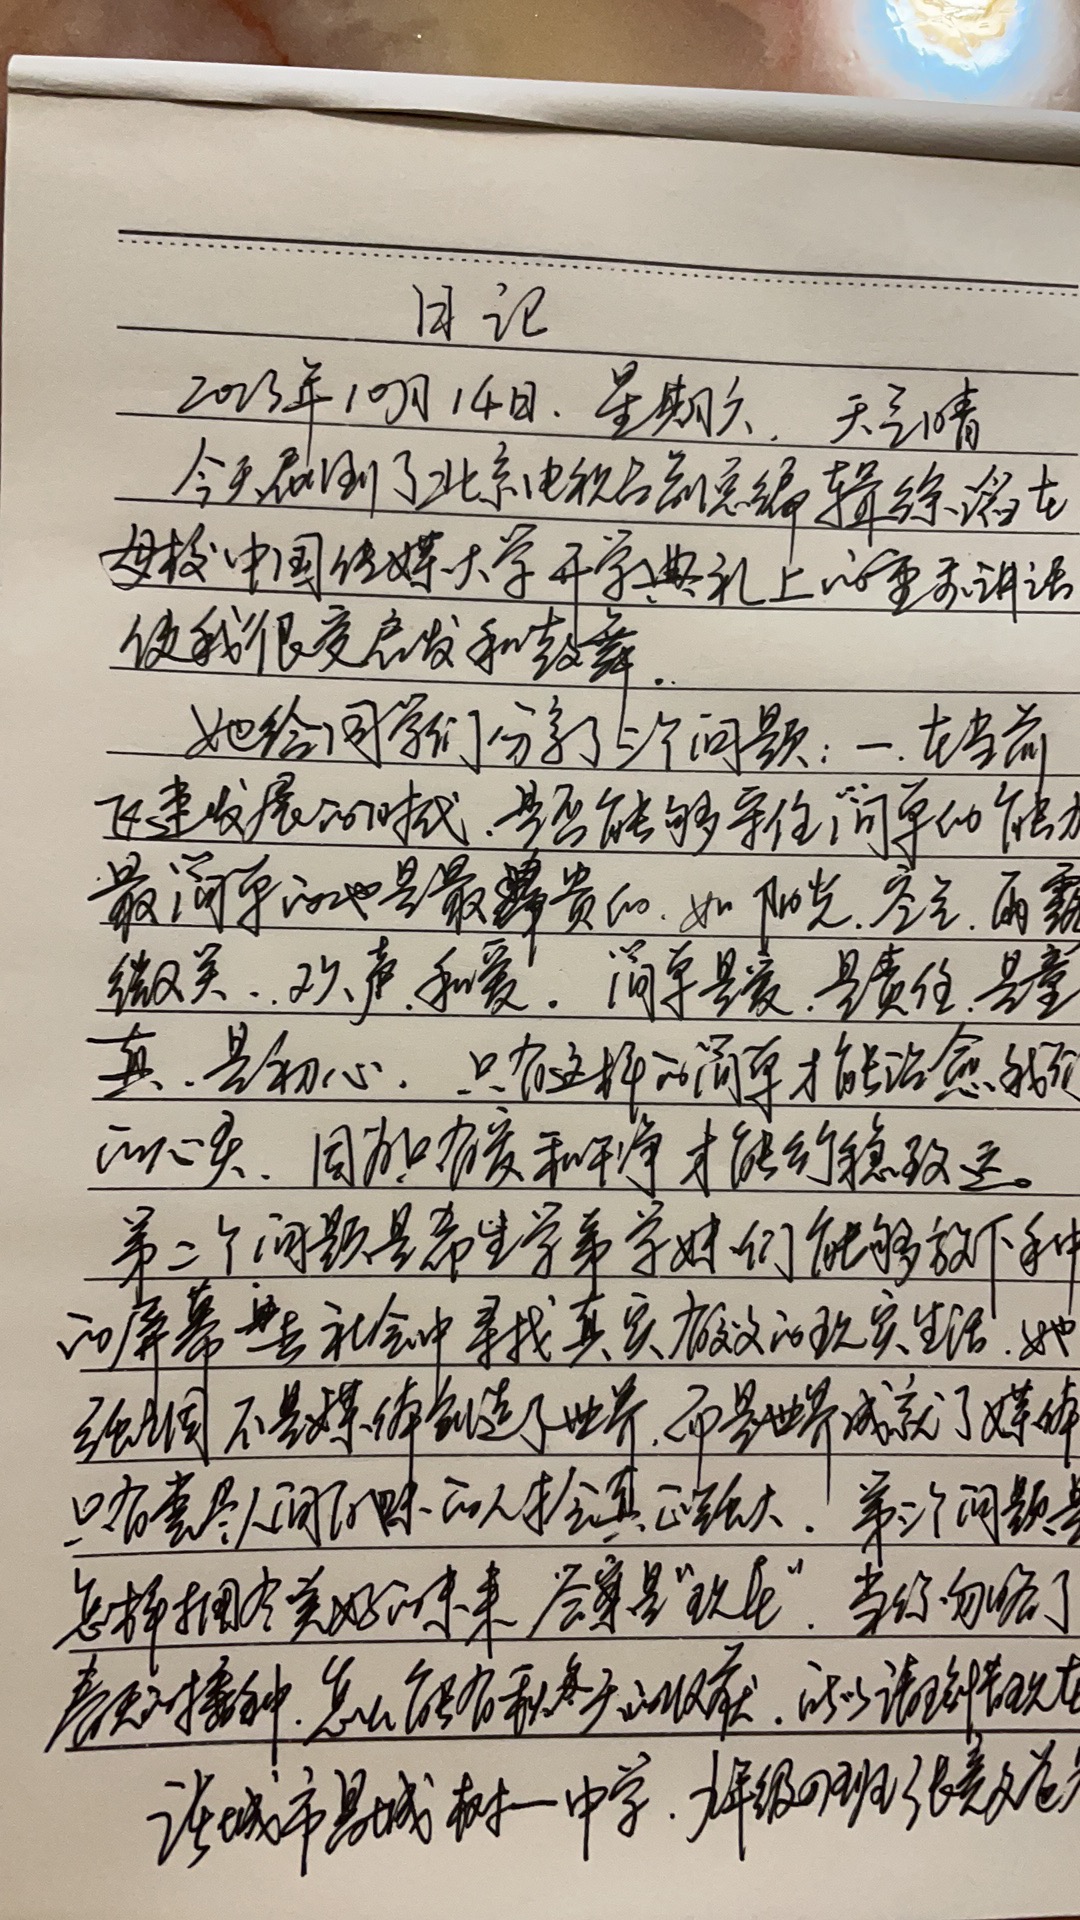 日记
2023年10月14日.星期六.天气晴
今天看到了北京电视台副总编辑徐滔在
母校中国传媒大学开学典礼上的重要讲话
使我很受启发和鼓舞.
她给同学们分享了三个问题:一.在当前
飞速发展的时代.是否能够守住简单的能力
最简单的也是最昂贵的.如阳光.空气.雨露
微笑..欢声.和爱.简单是爱.是责任.是童
真.是初心.只有这样的简单才能治愈我们
的心灵.因为只有爱和干净才能行稳致远。
第二个问题是希望学弟学妹们能够放下手中
的屏幕 去社会中寻找真实有效的现实生活.她
强调不是媒体创造了世界.而是世界成就了媒体
只有尝尽人间百味的人才会真正强大.第三个问题是
怎样拥有美好的未来 答案是"现在".当你忽略了
春天的播种.怎么能有秋冬天的收获.所以请珍惜现在
诸城市县城 一中学.九年级四班张